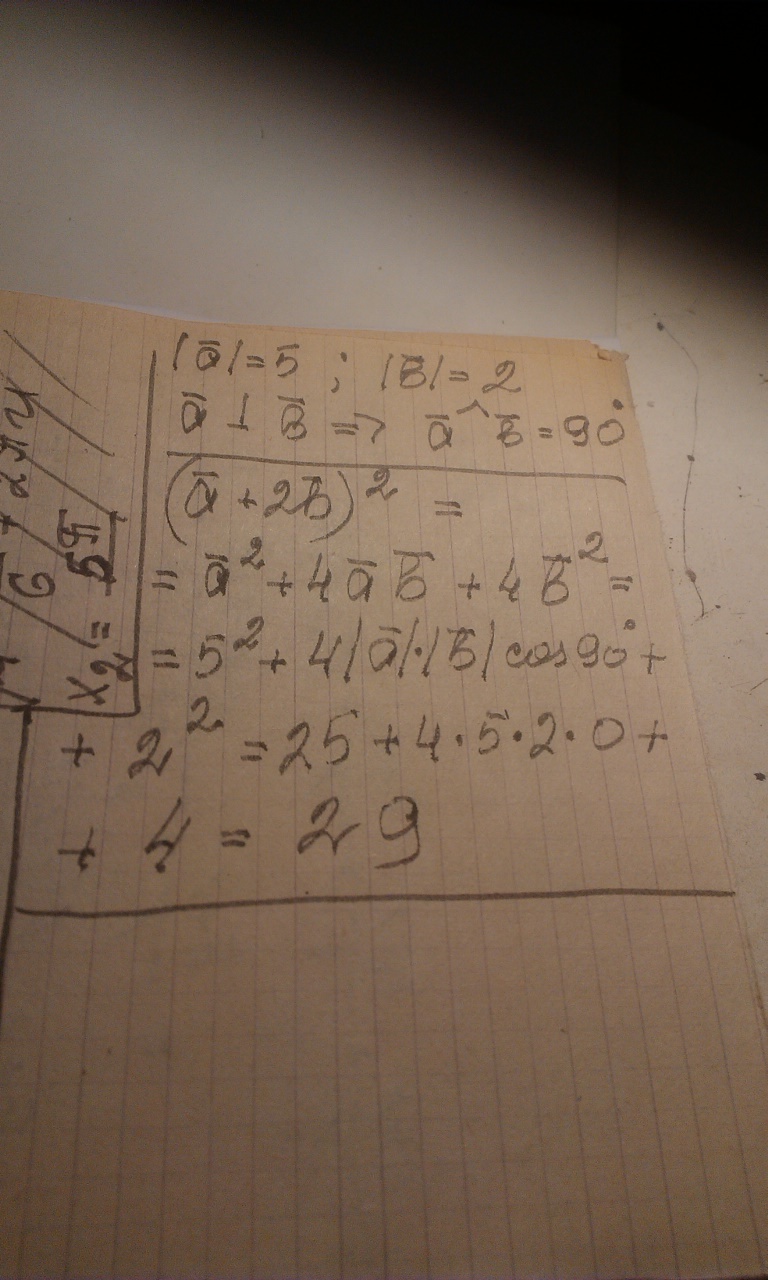 |a̅| = 5 ; |b̅| = 2
a̅ ⊥ b̅ => a̅ ^ b̅ = 90°
(a̅ + 2b̅)² =
= a̅² + 4a̅b̅ + 4b̅² =
= 5² + 4|a̅|·|b̅| cos90° +
+ 2² = 25 + 4·5·2·0 +
+ 4 = 29
6 + 2πn
x₂ = 5π